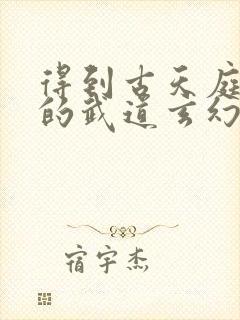 得到古天庭
的武道玄幻
宿宇杰